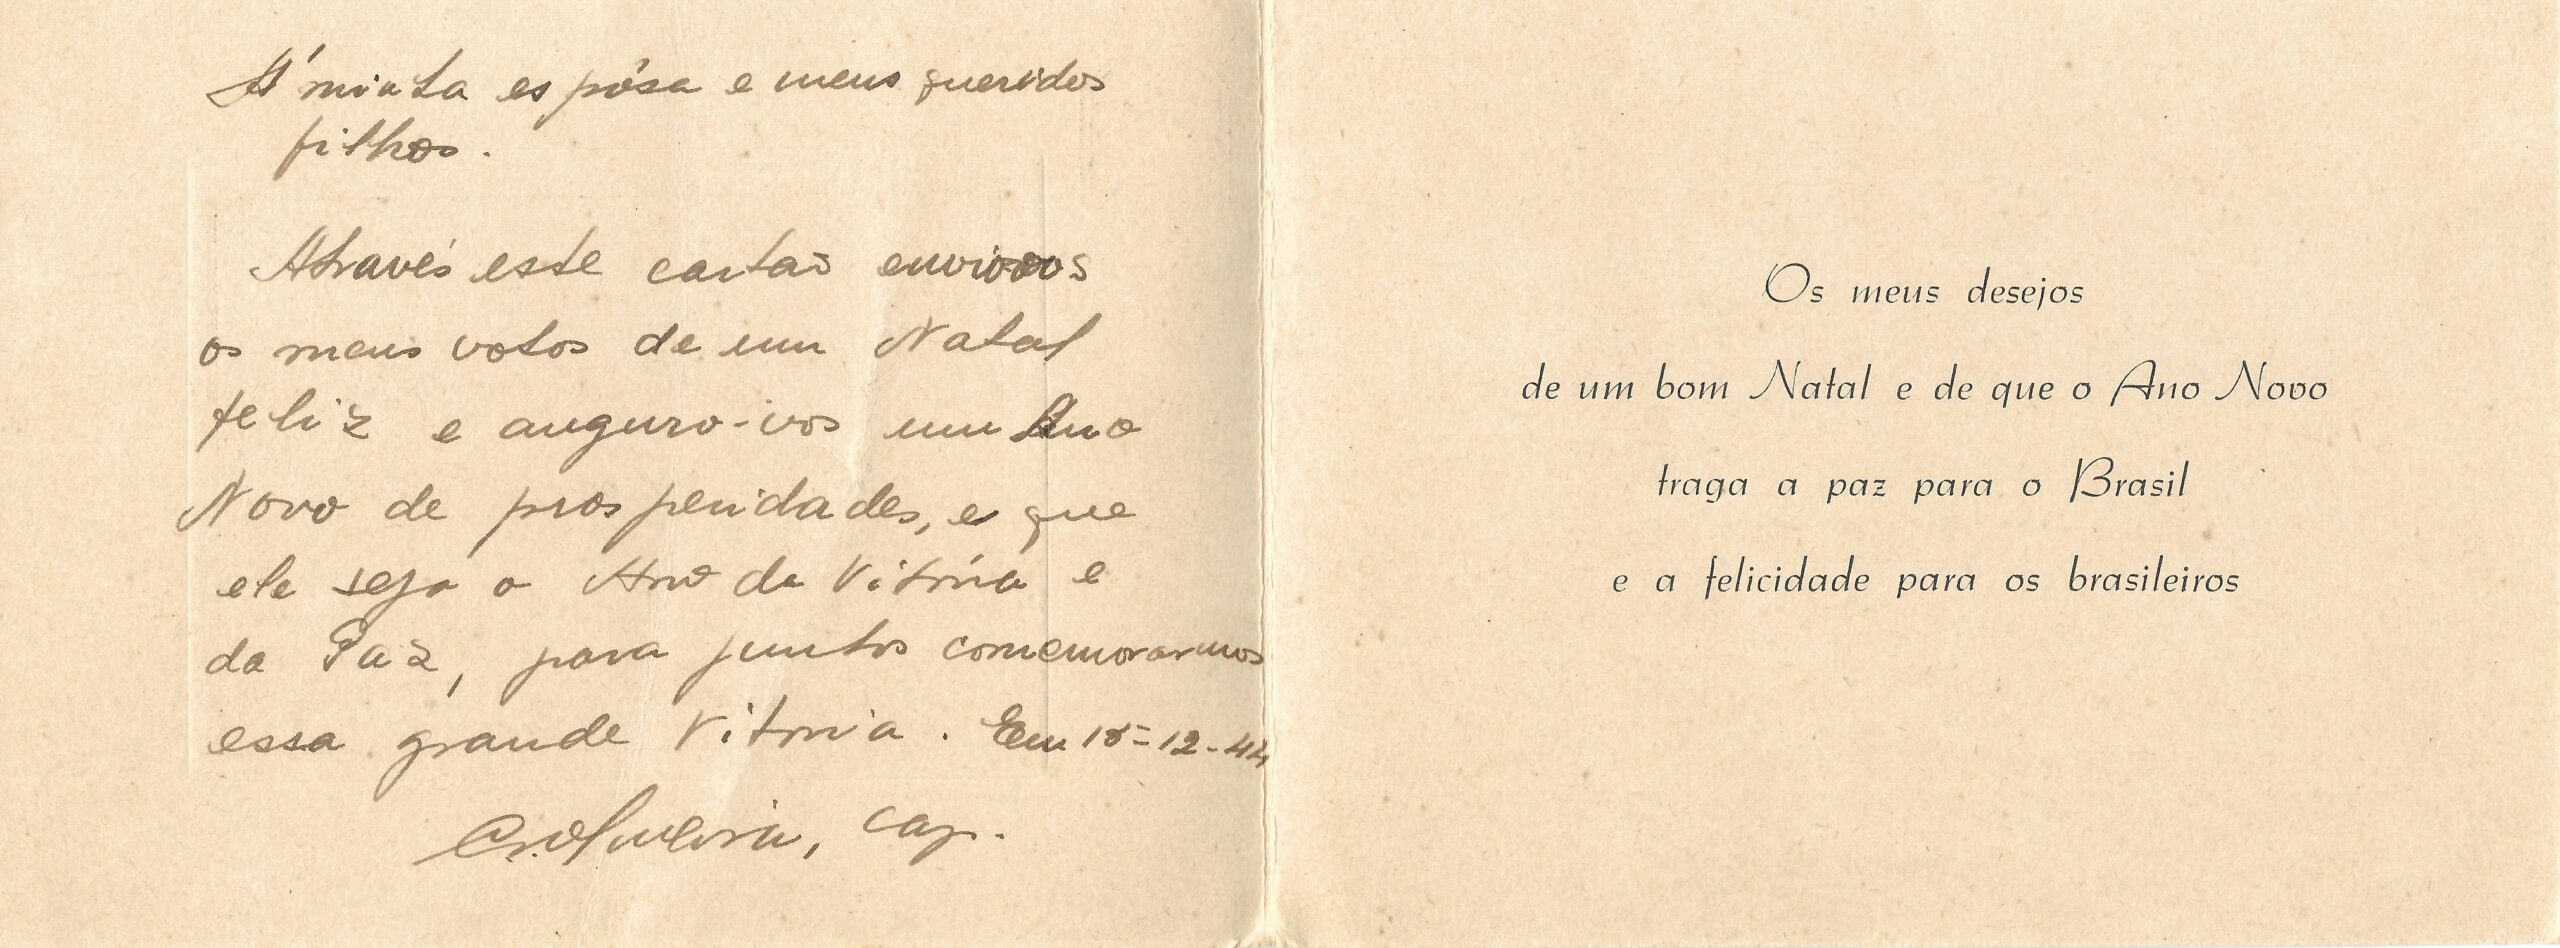 Á minha espôsa e meus queridos
filhos.
Através este cartão envio-vos
os meus votos de um Natal
feliz e auguro-vos um Ano
Novo de prosperidades, e que
ele seja o Ano da Vitória e
da Paz, para juntos comemorarmos
essa grande Vitória. Em 18-12-44
Cap.
Os meus desejos
de um bom Natal e de que o Ano Novo
traga a paz para o Brasil
e a felicidade para os brasileiros